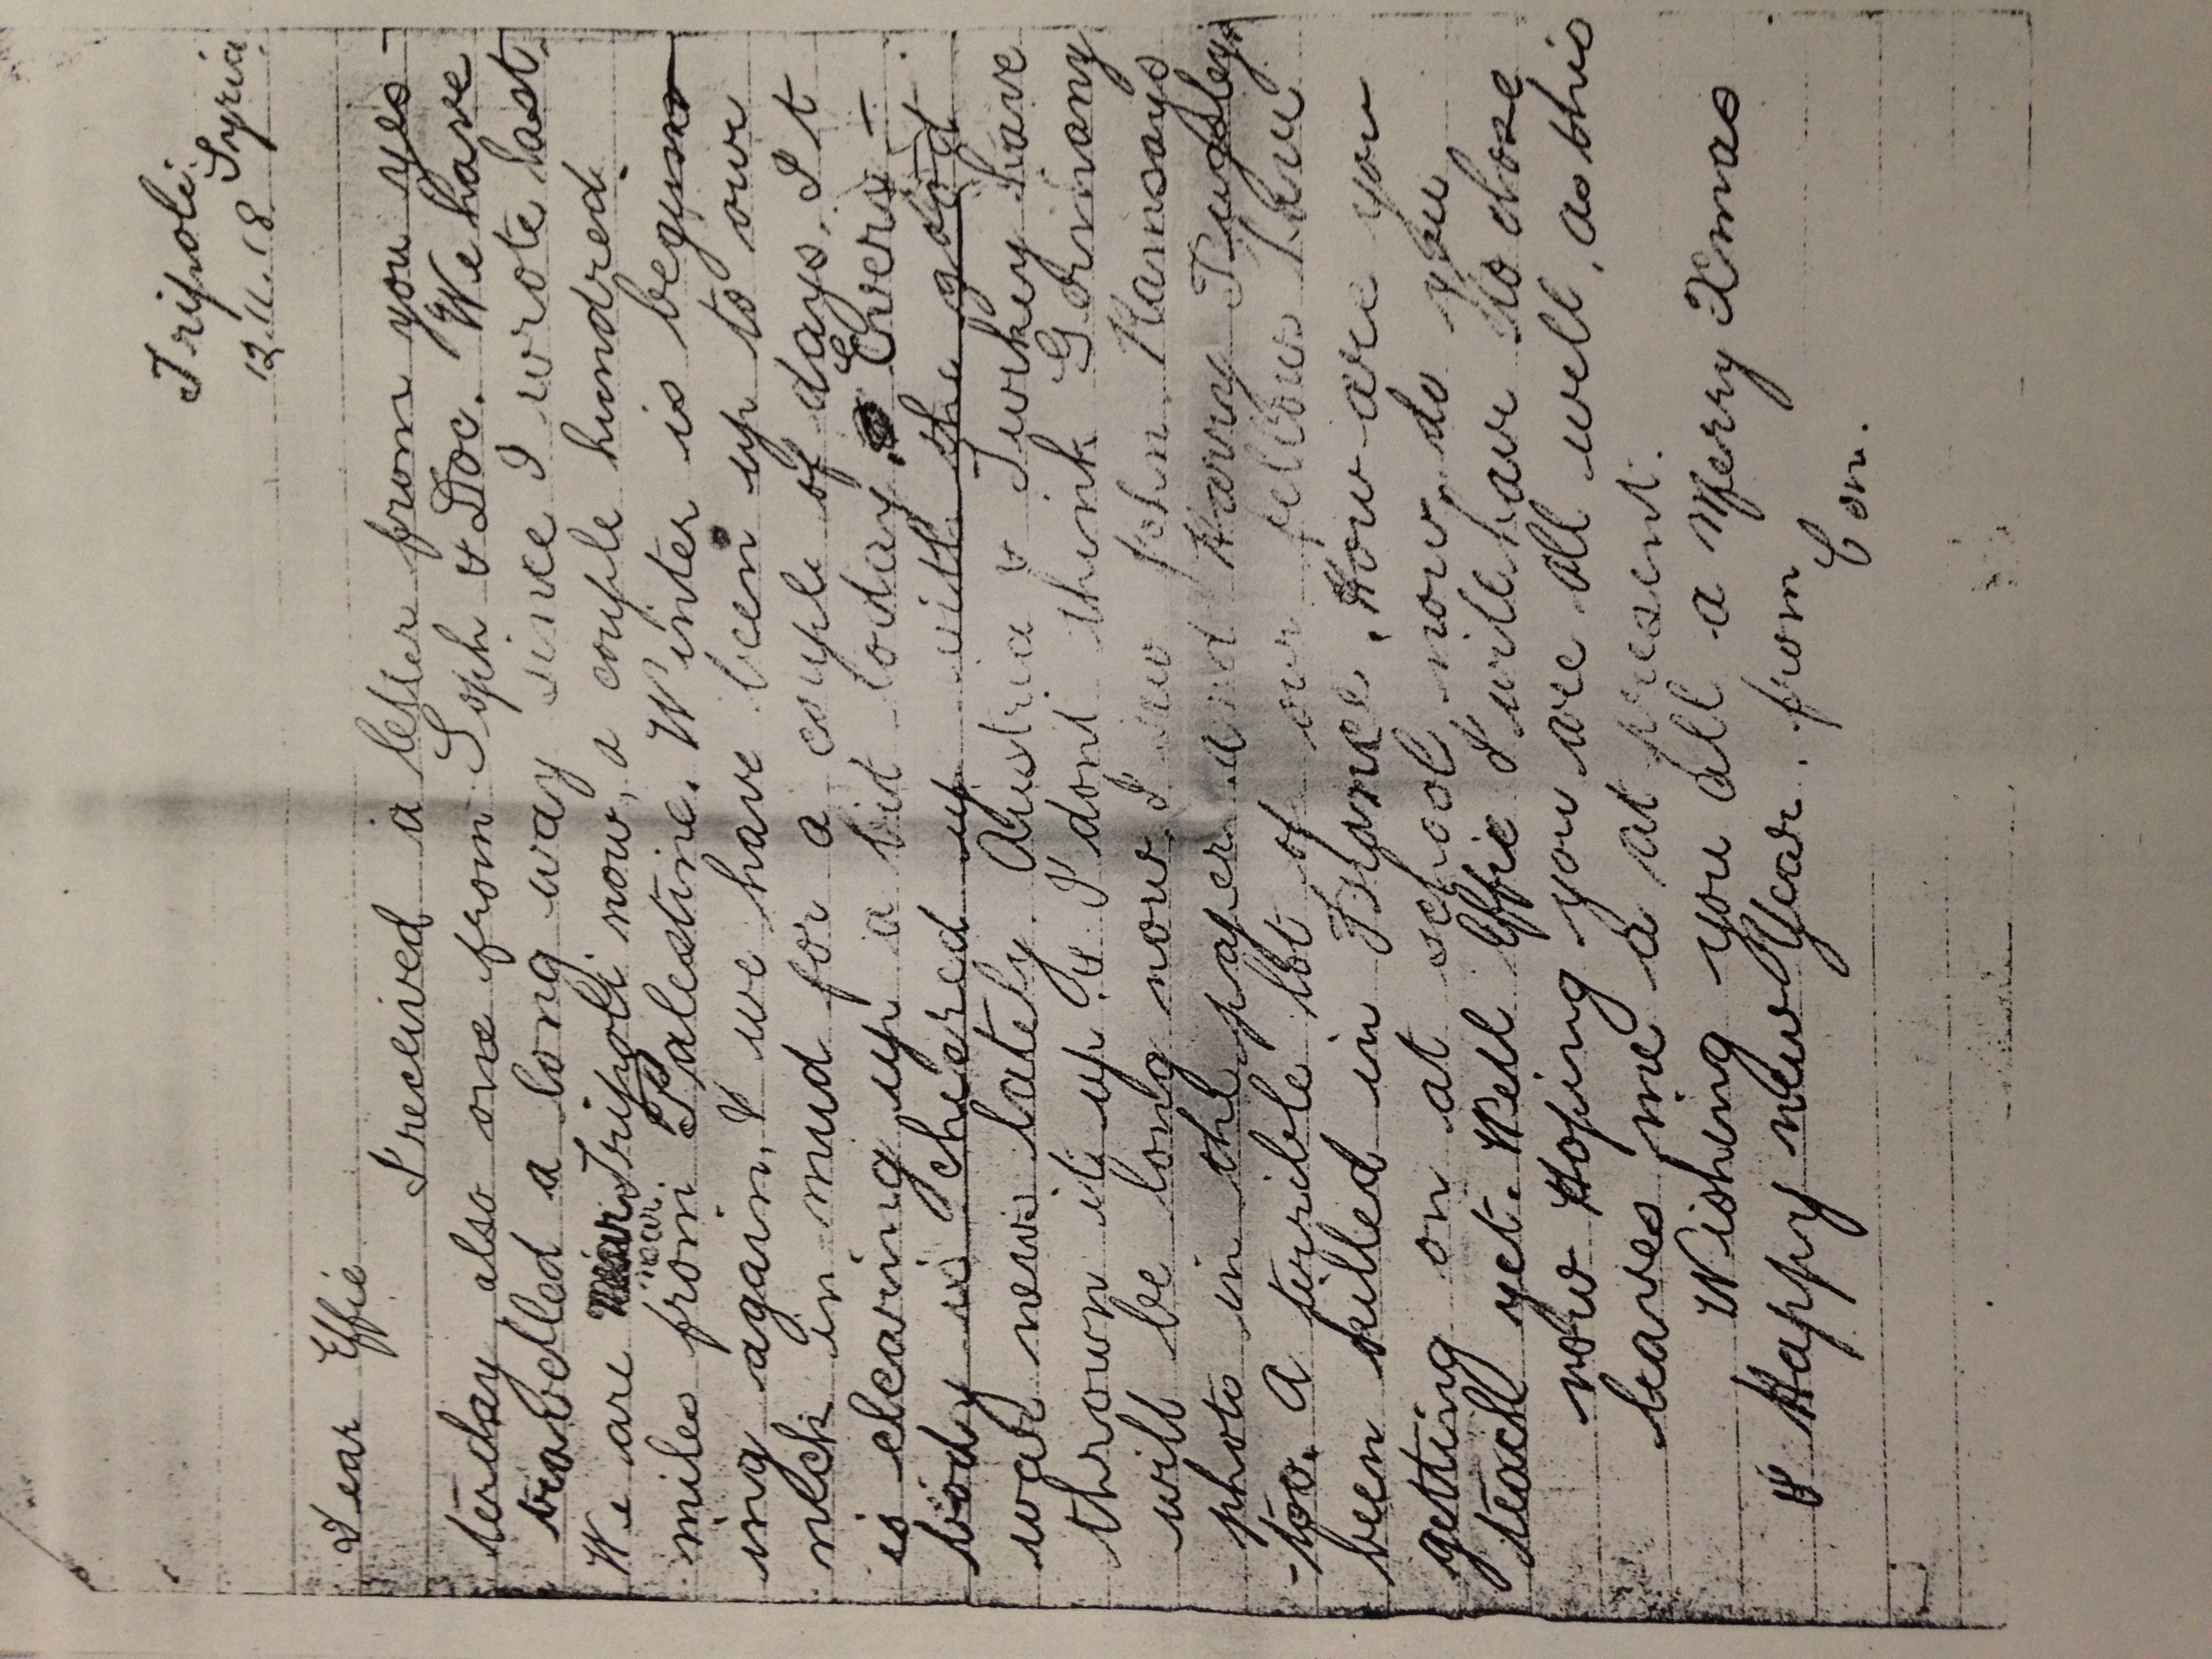 Tripoli.
12.11.18 Syria.
Dear Effie
I received a letter from you yes-
terday also one from Soph & Doc. We have
travelled a long way since I wrote last.
We are near Tripoli now, a couple hundred
miles from Palestine. Winter is beginn
ing again, & we have been up to our
neck in mud for a couple of days. It
is clearing up a bit today. Every-
body is cheered up with the good
war news lately. Austria & Turkey have
thrown it up & I dont think Germany
will be long now. I saw John Ramsays
photo in the paper and Harry Pugsley
too. A terible lot of our fellows have
been killed in France. How are you
getting on at school now, do you
teach yet. Well Effie I will have to close
now Hoping you are all well, as this
leaves me a at present.
Wishing you all a Merry Xmas
& Happy new Year. from
Con.